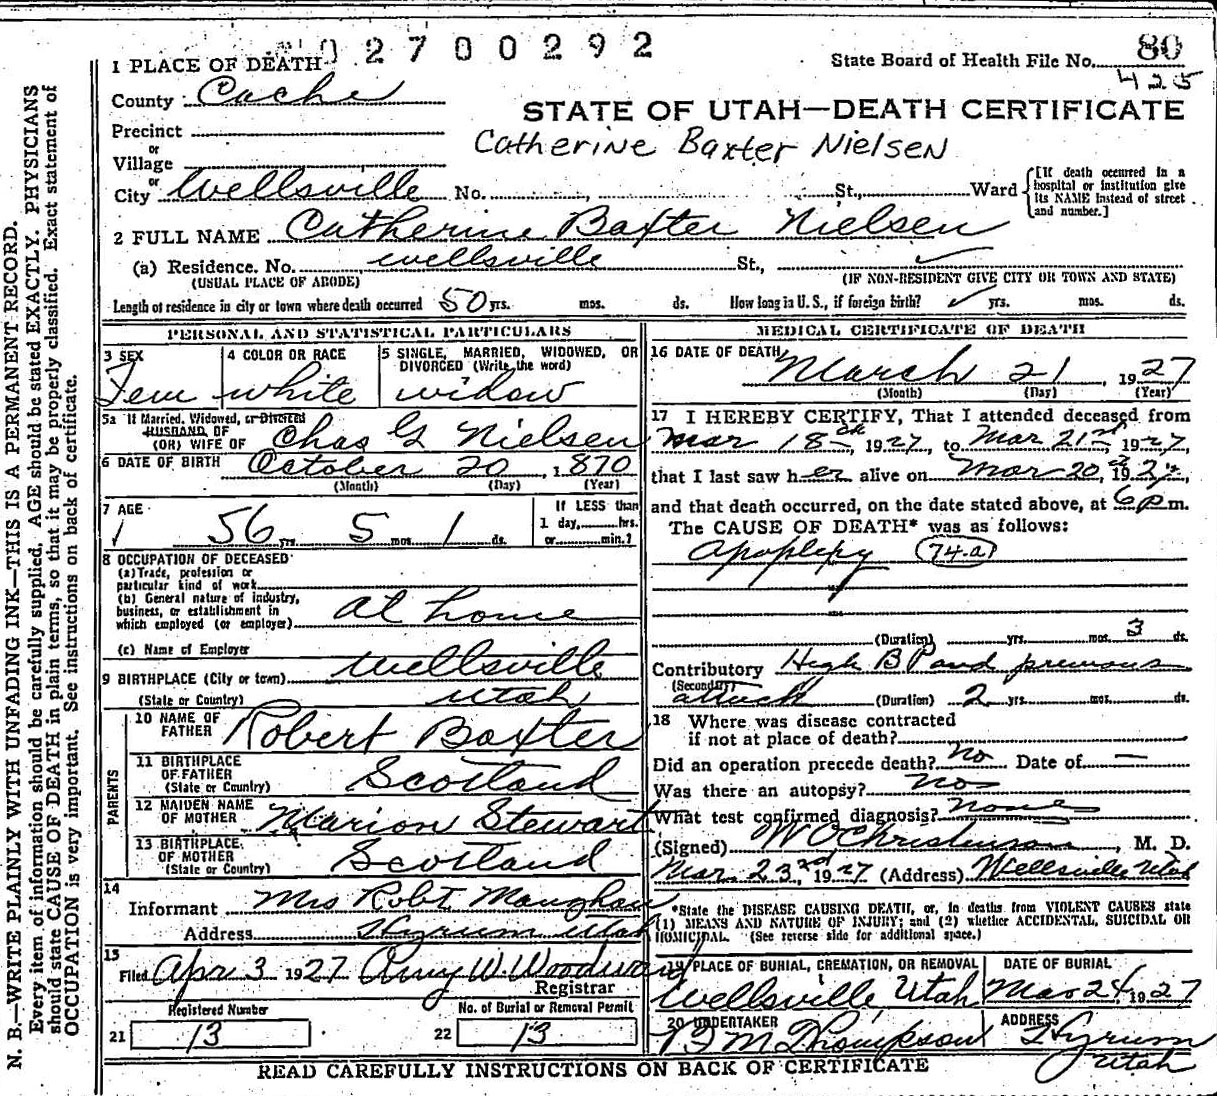 02700292
State Board of Health File No. 80
425
1 PLACE OF DEATH
County Cache
STATE OF UTAH—DEATH CERTIFICATE
Precinct
or
Village
Catherine Baxter Nielsen
or
City Wellsville No. St., Ward
[If death occurred in a
hospital or institution give
its NAME instead of street
and number.]
2 FULL NAME Catherine Baxter Nielsen
(a) Residence. No. Wellsville St.,
(USUAL PLACE OF ABODE) (IF NON-RESIDENT GIVE CITY OR TOWN AND STATE)
Length of residence in city or town where death occurred 50 yrs. mos. ds. How long in U. S., if foreign birth? ✓ yrs. mos. ds.
PERSONAL AND STATISTICAL PARTICULARS
3 SEX
Fem
4 COLOR OR RACE
white
5 SINGLE, MARRIED, WIDOWED, OR
DIVORCED (Write the word)
widow
5a If Married, Widowed, or Divorced
HUSBAND OF
(OR) WIFE OF Chas G Nielsen
6 DATE OF BIRTH October 20, 1870
(Month) (Day) (Year)
7 AGE
56 yrs. 5 mos. 1 ds.
If LESS than
1 day, hrs.
or min.?
8 OCCUPATION OF DECEASED
(a) Trade, profession or
particular kind of work
(b) General nature of industry,
business, or establishment in
which employed (or employer) at home
(c) Name of Employer
9 BIRTHPLACE (City or town) Wellsville
(State or Country) Utah
PARENTS
10 NAME OF
FATHER Robert Baxter
11 BIRTHPLACE
OF FATHER
(State or Country) Scotland
12 MAIDEN NAME
OF MOTHER Marion Stewart
13 BIRTHPLACE
OF MOTHER
(State or Country) Scotland
14
Informant Mrs Robt Maughan
Address Hyrum Utah
15
Filed Apr 3 1927 W. Woodward
Registrar
Registered Number
21 13
No. of Burial or Removal Permit
22 13
MEDICAL CERTIFICATE OF DEATH
16 DATE OF DEATH
March 21, 1927
(Month) (Day) (Year)
17 I HEREBY CERTIFY, That I attended deceased from
Mar 18th, 1927, to Mar 21st, 1927,
that I last saw her alive on Mar 20, 192
and that death occurred, on the date stated above, at 6 p m.
The CAUSE OF DEATH* was as follows:
Apoplexy (74-a)
(Duration) yrs. mos. 3 ds.
Contributory High B P and previous
(Secondary) attack (Duration) 2 yrs. mos. ds.
18 Where was disease contracted
if not at place of death?
Did an operation precede death? no Date of —
Was there an autopsy? no
What test confirmed diagnosis? none
(Signed) W O Christenson, M. D.
Mar. 23rd, 1927 (Address) Wellsville Utah
*State the DISEASE CAUSING DEATH, or, in deaths from VIOLENT CAUSES state
(1) MEANS AND NATURE OF INJURY; and (2) whether ACCIDENTAL, SUICIDAL OR
HOMICIDAL. (See reverse side for additional space.)
19 PLACE OF BURIAL, CREMATION, OR REMOVAL
Wellsville Utah
DATE OF BURIAL
Mar 24 1927
20 UNDERTAKER
B M Thompson
ADDRESS
Hyrum
Utah
READ CAREFULLY INSTRUCTIONS ON BACK OF CERTIFICATE
N. B.—WRITE PLAINLY WITH UNFADING INK—THIS IS A PERMANENT RECORD.
Every item of information should be carefully supplied. AGE should be stated EXACTLY. PHYSICIANS
should state CAUSE OF DEATH in plain terms, so that it may be properly classified. Exact statement of
OCCUPATION is very important. See instructions on back of certificate.